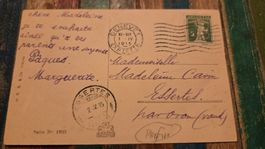 chère Madeleine
je te souhaite
ainsi qu'à tes
parents une joyeuse
Pâques
Marguerite.
GENÈVE
Mademoiselle
Madeleine
Essertes
par Oron (Vaud)
ESSERTES